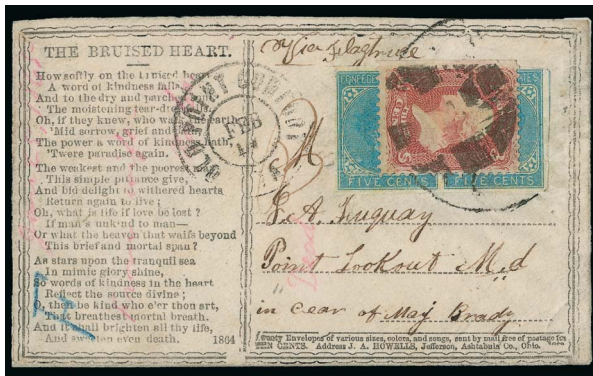 THE BRUISED HEART.
How softly on the bruised heart
A word of kindness falls,
And to the dry and parched
The moistening tear-drop
Oh, if they knew, who walk the earth
'Mid sorrow, grief and pain,
The power a word of kindness hath,
'Twere paradise again.
The weakest and the poorest may
This simple pittance give,
And bid delight to withered hearts
Return again to live;
Oh, what is life if love be lost?
If man's unkind to man—
Or what the heaven that waits beyond
This brief and mortal span?
As stars upon the tranquil sea
In mimic glory shine,
So words of kindness in the heart
Reflect the source divine;
O, then be kind who e'er thou art,
That breathes mortal breath.
And it shall brighten all thy life,
And sweeten even death. 1864
OLD POINT COMFORT
FEB
FIVE CENTS
FIVE CENTS
M
Point Lookout Md
in cear of Maj Brady
Envelopes of various sizes, colors, and songs, sent by mail free of postage for
TEEN CENTS. Address J. A. HOWELLS, Jefferson, Ashtabula Co., Ohio.